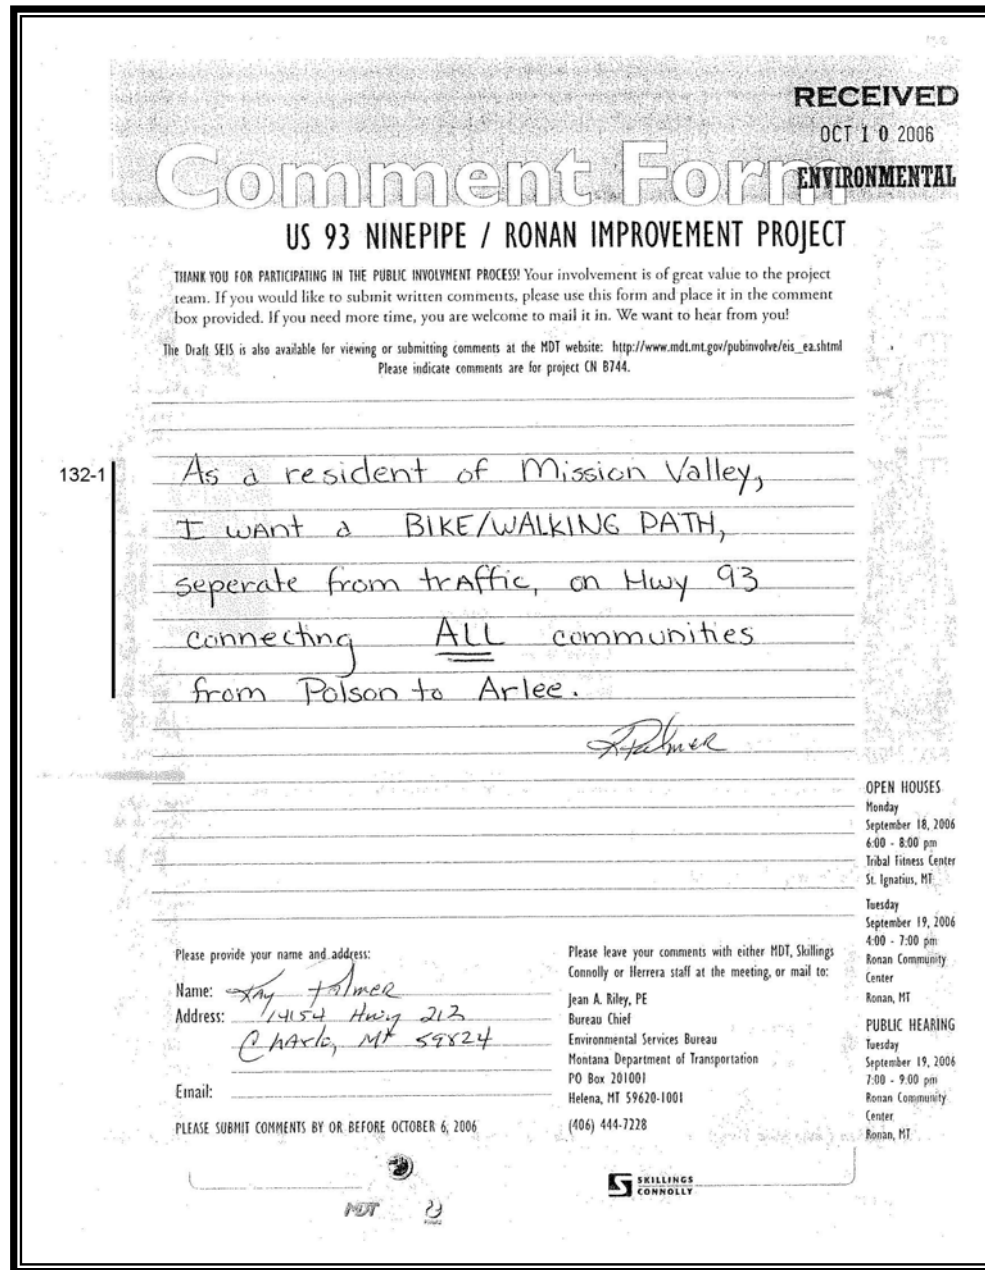 RECEIVED
OCT 10 2006
ENVIRONMENTAL
Comment Form
US 93 NINEPIPE / RONAN IMPROVEMENT PROJECT
THANK YOU FOR PARTICIPATING IN THE PUBLIC INVOLVMENT PROCESS! Your involvement is of great value to the project
team. If you would like to submit written comments, please use this form and place it in the comment
box provided. If you need more time, you are welcome to mail it in. We want to hear from you!
The Draft SEIS is also available for viewing or submitting comments at the MDT website: http://www.mdt.mt.gov/pubinvolve/eis_ea.shtml
Please indicate comments are for project CN B744.
132-1
As a resident of Mission Valley,
I want a BIKE/WALKING PATH,
seperate from traffic, on Hwy 93
connecting ALL communities
from Polson to Arlee.
KPalmer
OPEN HOUSES
Monday
September 18, 2006
6:00 - 8:00 pm
Tribal Fitness Center
St. Ignatius, MT
Tuesday
September 19, 2006
4:00 - 7:00 pm
Ronan Community
Center
Ronan, MT
PUBLIC HEARING
Tuesday
September 19, 2006
7:00 - 9:00 pm
Ronan Community
Center
Ronan, MT
Please provide your name and address:
Name: Kay Palmer
Address: 14154 Hwy 212
Charlo, Mt 59824
Email:
PLEASE SUBMIT COMMENTS BY OR BEFORE OCTOBER 6, 2006
Please leave your comments with either MDT, Skillings
Connolly or Herrera staff at the meeting, or mail to:
Jean A. Riley, PE
Bureau Chief
Environmental Services Bureau
Montana Department of Transportation
PO Box 201001
Helena, MT 59620-1001
(406) 444-7228
MDT
SKILLINGS
CONNOLLY